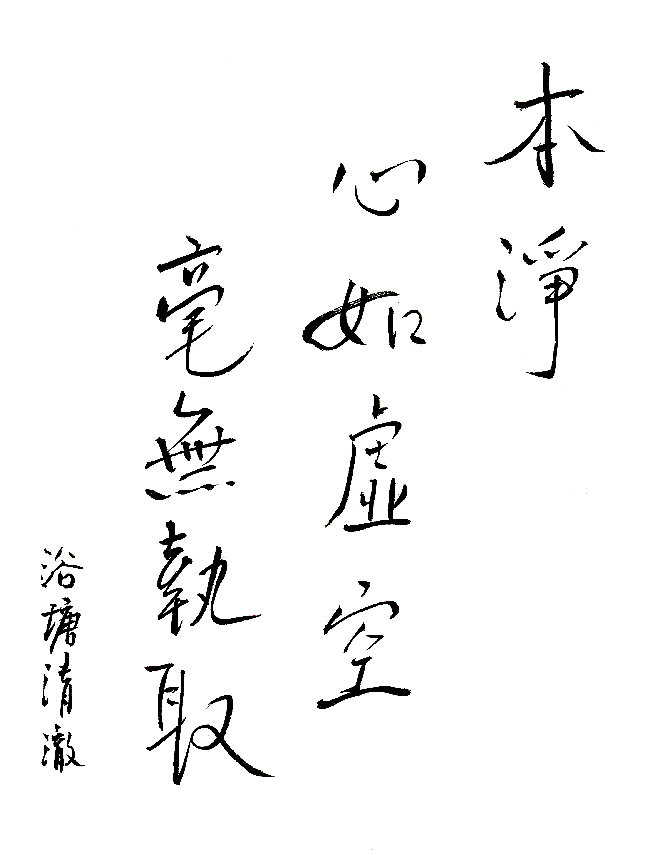 本淨
心如虛空
毫無執取
浴塘清澈